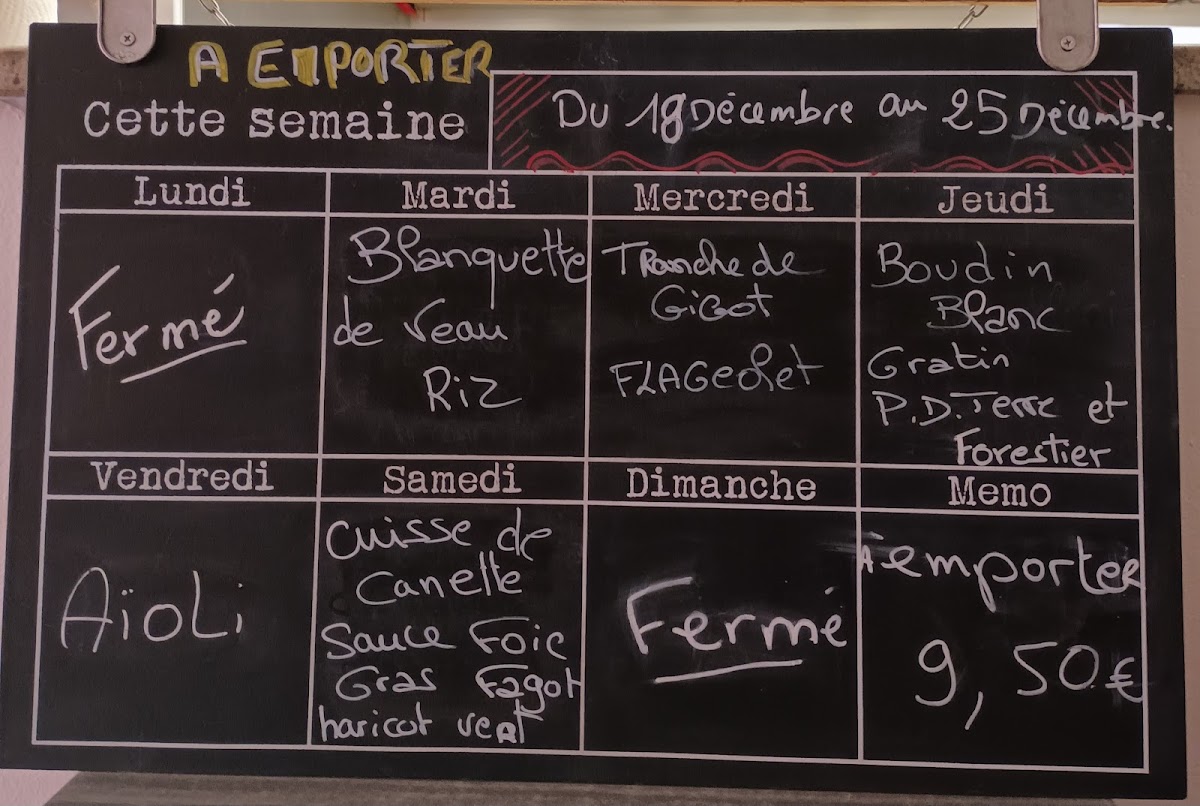 A EMPORTER
Cette semaine
Du 18 Décembre au 25 Décembre.
Lundi
Fermé
Mardi
Blanquette
de veau
Riz
Mercredi
Tranche de
Gigot
FLAGeolet
Jeudi
Boudin
Blanc
Gratin
P.D.Terre et
Forestier
Vendredi
Aïoli
Samedi
Cuisse de
Canette
Sauce Foie
Gras Fagot
haricot vert
Dimanche
Fermé
Memo
A emporter
9,50€